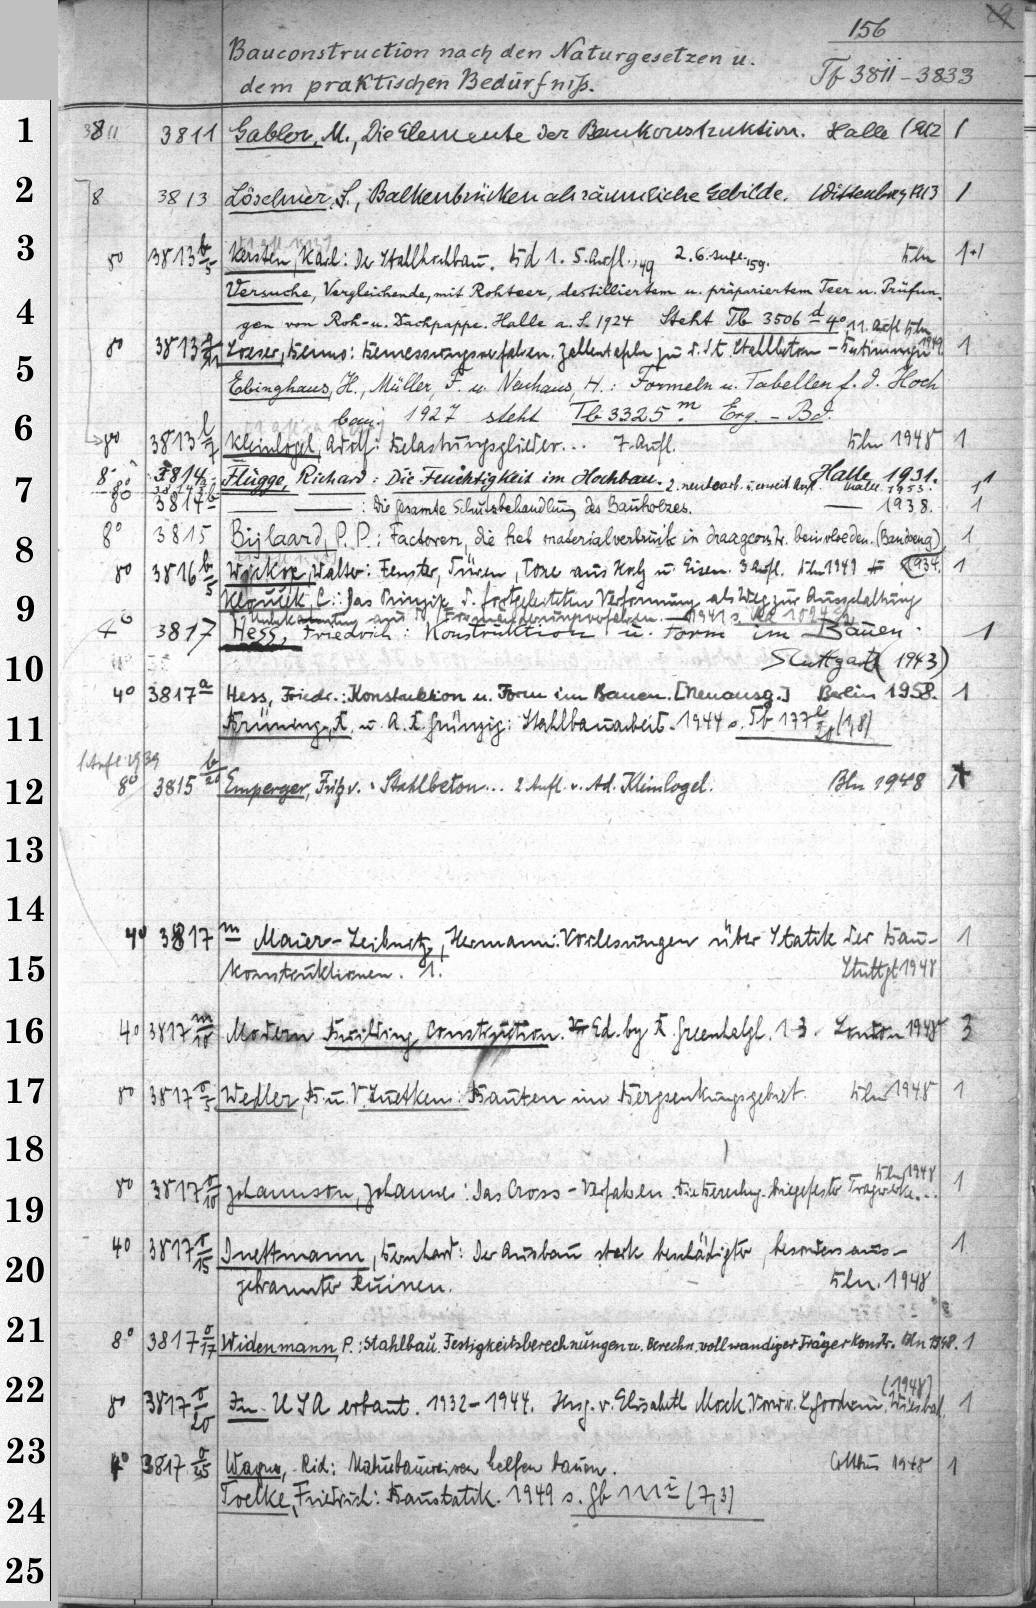 156
Bauconstruction nach den Naturgesetzen u.
dem praktischen Bedürfniß.
Tf 3811 - 3833
1 3811 3811 Gabler, M., Die Elemente der Baukonstruktion. Halle 1912 1
2 8 3813 Löschner, S., Balkenbrücken als räumliche Gebilde. Wittenberg 1913 1
3 8° 3813 b/5 Kersten, Karl: Der Stahlhochbau. Bd 1. 5. Aufl. 49 2. 6. Aufl. 59. Bln 1+1
Versuche, Vergleichende, mit Rohteer, destilliertem u. präpariertem Teer u. Prüfun-
4 gen von Roh- u. Dachpappe. Halle a. S. 1924 Steht Tb 3506 d 4° 11. Aufl Bln
5 8° 3813 Loeser, Benno: Bemessungsverfahren. Zahlentafeln zu Stahlbeton - Bestimmungen 1949. 1
Ebinghaus, H., Müller, F. u. Neuhaus, H.: Formeln u. Tabellen f. d. Hoch
bau 1927 steht Tb 3325 m Erg. - Bd.
6 8° 3813 l/7 Kleinlogel, Adolf: Belastungsglieder... 7. Aufl. Bln 1948 1
7 8° 3814 Flügge, Richard: Die Feuchtigkeit im Hochbau. Halle 1931.
2. neubearb. u. erweit. Aufl. Halle 1953. 1
8° 3814 b — — : Die gesamte Schutzbehandlung des Bauholzes. — 1938. 1
8 8° 3815 Bijlaard, P. P.: Factoren, die het materialverbruik in draagconstr. beinvloeden. (Bandoeng) 1
8° 3816 b/5 Wickop, Walter: Fenster, Türen, Tore aus Holz u Eisen. 3 Aufl. Bln 1949 1934. 1
9 Kloucek, C.: Das Prinzip d. fortgeleiteten Verformung als Weg zur Ausschaltung
1941 s.
4° 3817 Hess, Friedrich: Konstruktion u. Form im Bauen. 1
10 Stuttgart (1943)
4° 3817 a Hess, Friedr.: Konstruktion u. Form im Bauen. [Neuausg.] Berlin 1958. 1
11 Brüning, K. u. A. K. Grünzig: Stahlbauarbeit. 1944 s. Tb 177 l/20 (1,8)
1. Aufl. 1939
12 8° 3815 b/20 Emperger, Fritz v.: Stahlbeton... 2 Aufl. v. Ad. Kleinlogel. Bln 1948
13
14
4° 3817 m Maier-Leibnitz, Hermann: Vorlesungen über Statik der Bau- 1
15 konstruktionen. 1. Stuttgt 1948
16 4° 3817 m/18 Modern Building Construction. Ed. by R. Greenhalgh. 1-3. London 1948 3
17 8° 3817 o/5 Wedler, B. u. V. Luetkens: Bauten im Bergsenkungsgebiet. Bln 1948 1
18
Bln 1948
19 8° 3817 o/10 Johannson, Johannes: Das Cross-Verfahren. Die Berechng. biegefester Tragwerke... 1
4° 3817 o/15 Duettmann, Bernhard: Der Ausbau stark beschädigter, besonders aus- 1
20 gebrannter Ruinen. Bln. 1948
21 8° 3817 o/17 Widenmann, P.: Stahlbau. Festigkeitsberechnungen u. Berechn. vollwandiger Träger Konstr. Bln 1948. 1
22 8° 3817 o/20 In USA erbaut. 1932-1944. Hrsg. v. Elisabeth Mock. Vorw. v. Goodwin, Wiesbad. (1948) 1
23 4° 3817 o/25 Wagner, Rich: Naturbauweisen helfen bauen. Cottbus 1948 1
24 Toelke, Friedrich: Baustatik. 1949 s. Gb 111 i (7,3)
25